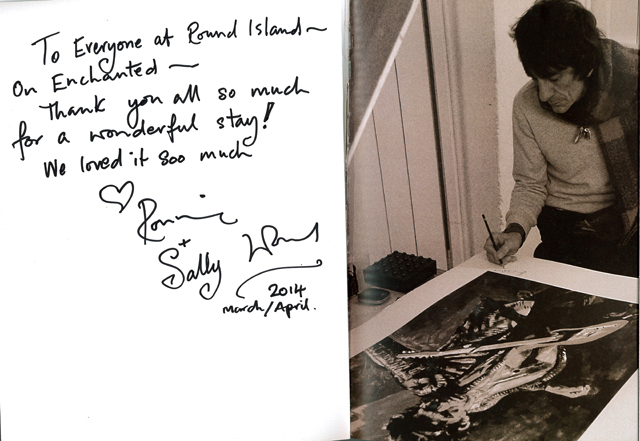 To Everyone at Round Island ~
On Enchanted ~
Thank you all so much
for a wonderful stay!
We loved it soo much
♡ Ronnie
+
Sally Wood
2014
march/April.